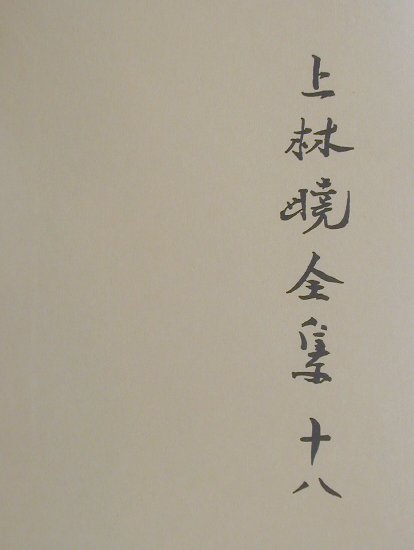 上林曉全集 十八